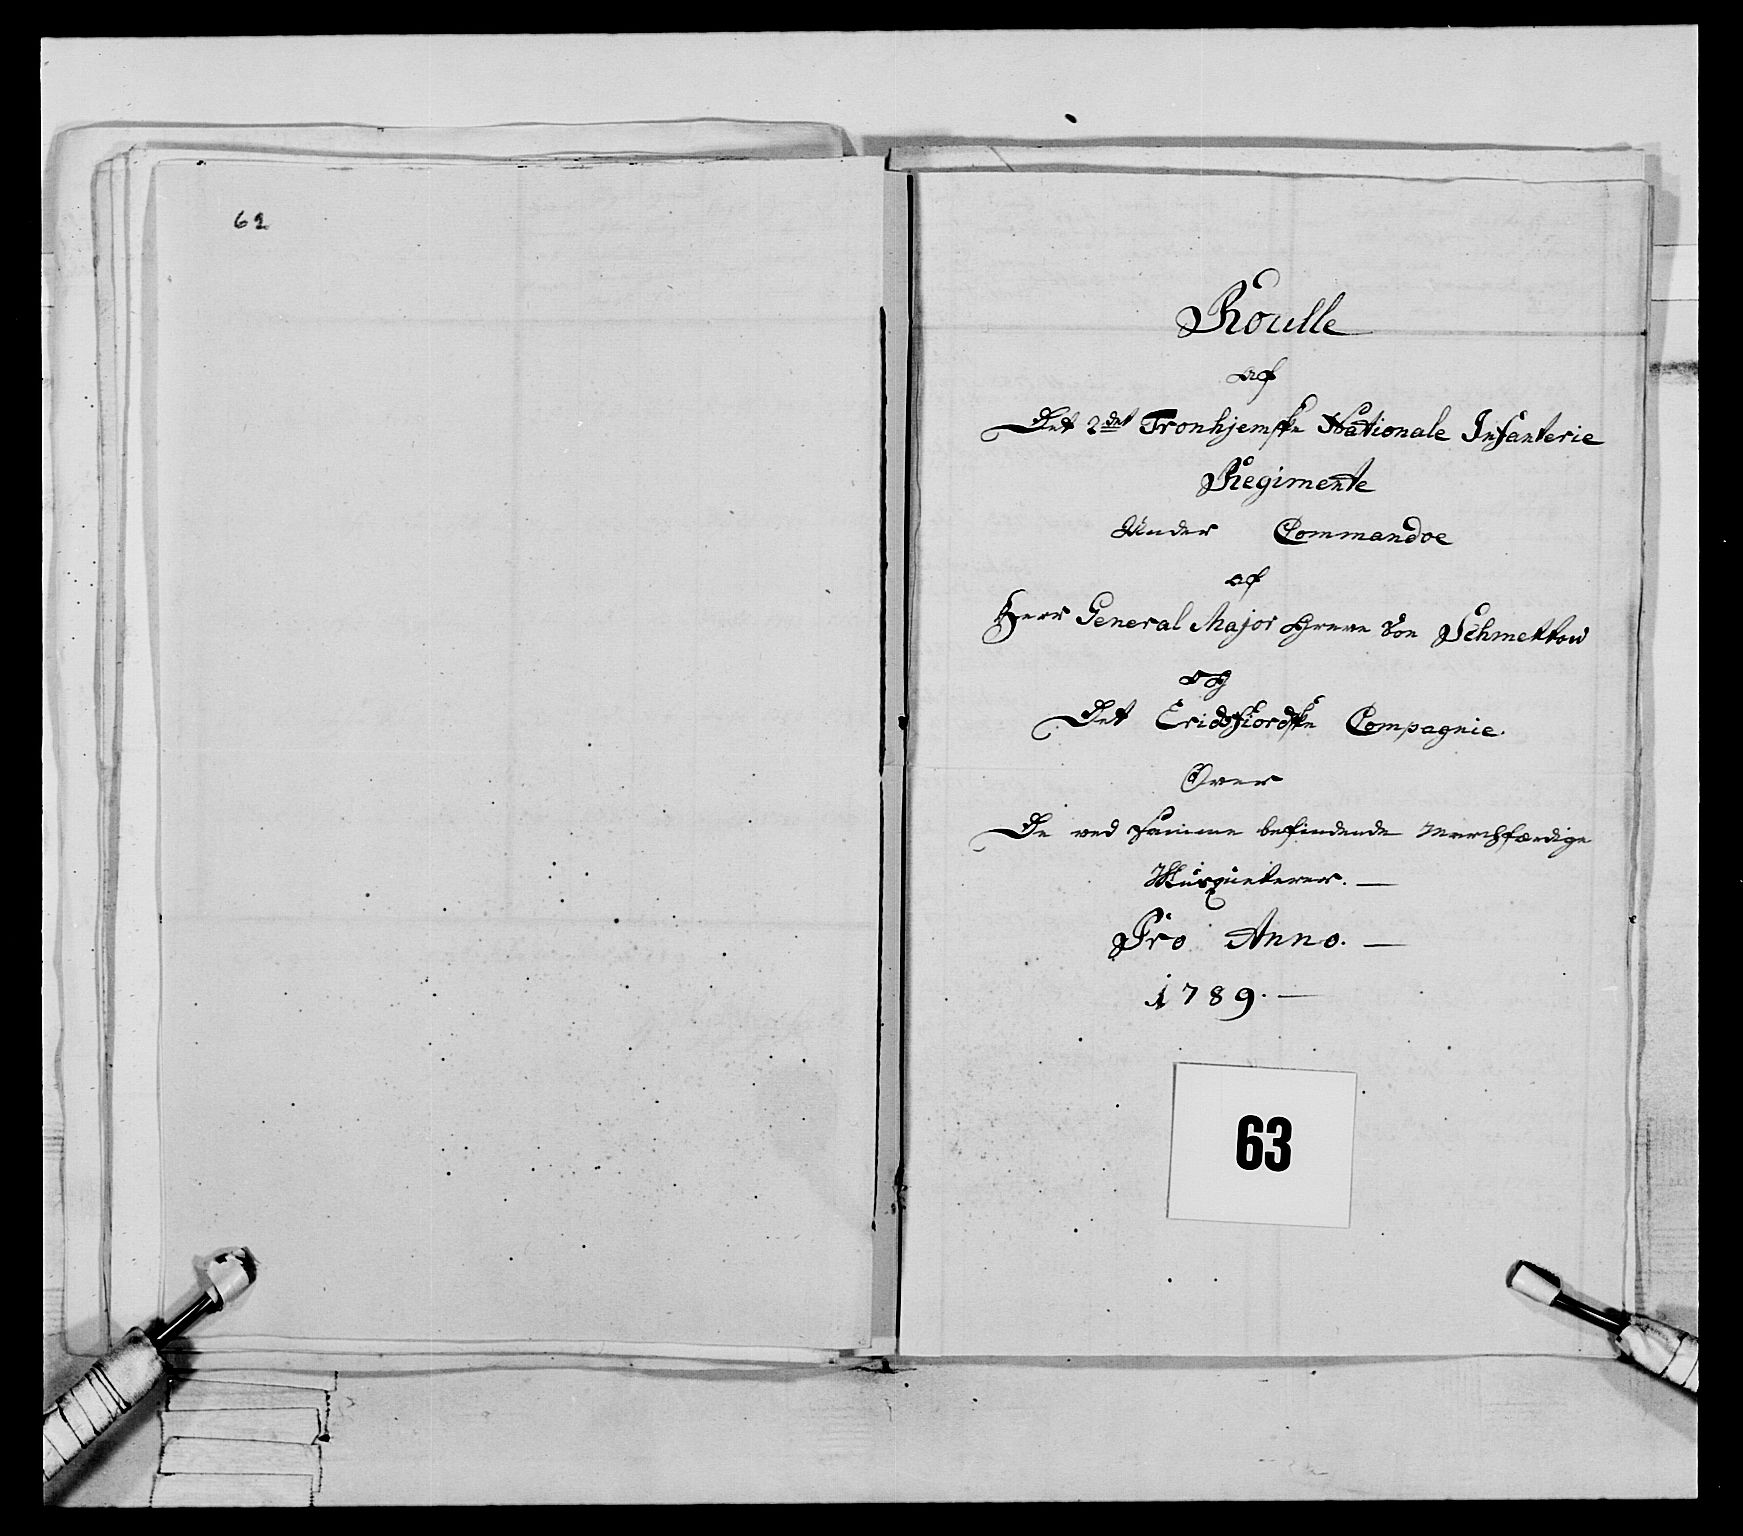 62
Roulle
af
Det 2det Tronhjemske Nationale Infanterie
Regimente
Under Commandoe
af
Herr General Major Greve von Schmettow
og
Det Eridsfiordske Compagnie.
Over
De ved samme befindende marchfærdige
Musqueterer. —
Pro Anno. —
1789. —
63